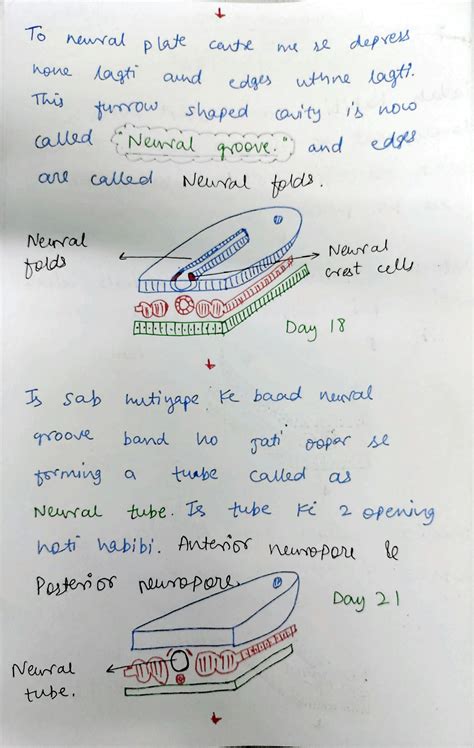 To neural plate centre me se depress
hone lagti and edges uthne lagti.
This furrow shaped cavity is now
called "Neural groove." and edges
are called Neural folds.
Neural folds
Neural crest cells
Day 18
Is sab hutiyape ke baad neural
groove band ho jati oopar se
forming a tuabe called as
Neural tube. Is tube ki 2 opening
hoti habibi. Anterior neuropore &
Posterior neuropore.
Day 21
Neural
tube.